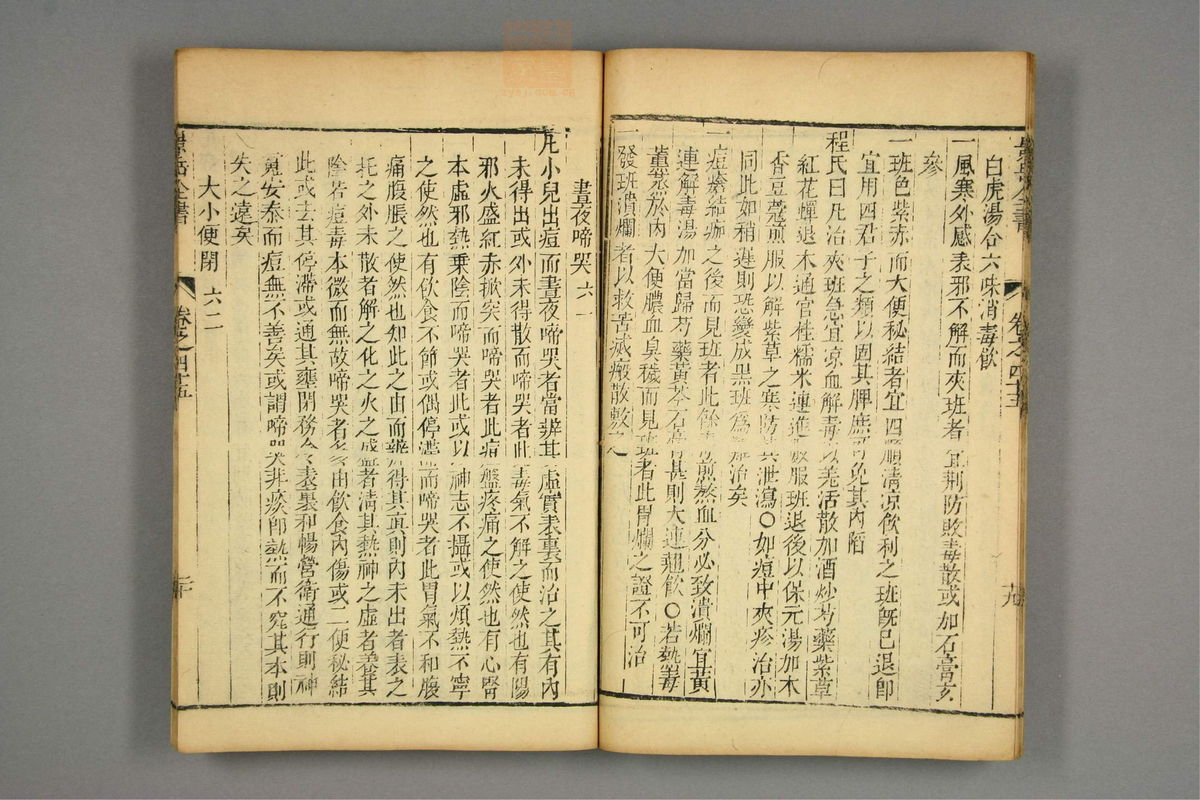 景岳全書 卷之四十五
白虎湯合六味消毒飲
一風寒外感表邪不解而夾班者宜荆防敗毒散或加石膏玄
參
一班色紫赤而大便秘結者宜四順清凉飲利之班旣已退卽
宜用四君子之類以固其脾庶可免其内陷
程氏曰凡治夾班急宜凉血解毒以羌活散加酒炒芍藥紫草
紅花蟬退木通官桂糯米連進數服班退後以保元湯加木
香豆蔲煎服以解紫草之寒防其泄瀉○如痘中夾疹治亦
同此如稍遲則恐變成黑班爲難治矣
一痘瘡結痂之後而見班者此餘毒煎熬血分必致潰爛宜黄
連解毒湯加當歸芍藥黄芩石膏甚則大連翹飲○若熱毒
薰蒸於内大便膿血臭穢而見班者此胃爛之證不可治
一發班潰爛者以救苦滅瘢散敷之
晝夜啼哭 六一
凡小兒出痘而晝夜啼哭者當辨其虛實表裏而治之其有内
未得出或外未得散而啼哭者此毒氣不解之使然也有陽
邪火盛紅赤掀突而啼哭者此痘盤疼痛之使然也有心腎
本虛邪熱乗陰而啼哭者此或以神志不攝或以煩熱不寧
之使然也有飲食不節或偶停滯而啼哭者此胃氣不和腹
痛腹脹之使然也知此之由而辨得其眞則内未出者表之
托之外未散者解之化之火之盛者清其熱神之虛者養其
陰若痘毒本微而無故啼哭者多由飲食内傷或二便秘結
此或去其停滯或通其壅閉務令表裏和暢營衛通行則神
竟安泰而痘無不善矣或謂啼哭非痰卽熱而不究其本則
失之遠矣
大小便閉 六二
景岳全書 卷之四十五